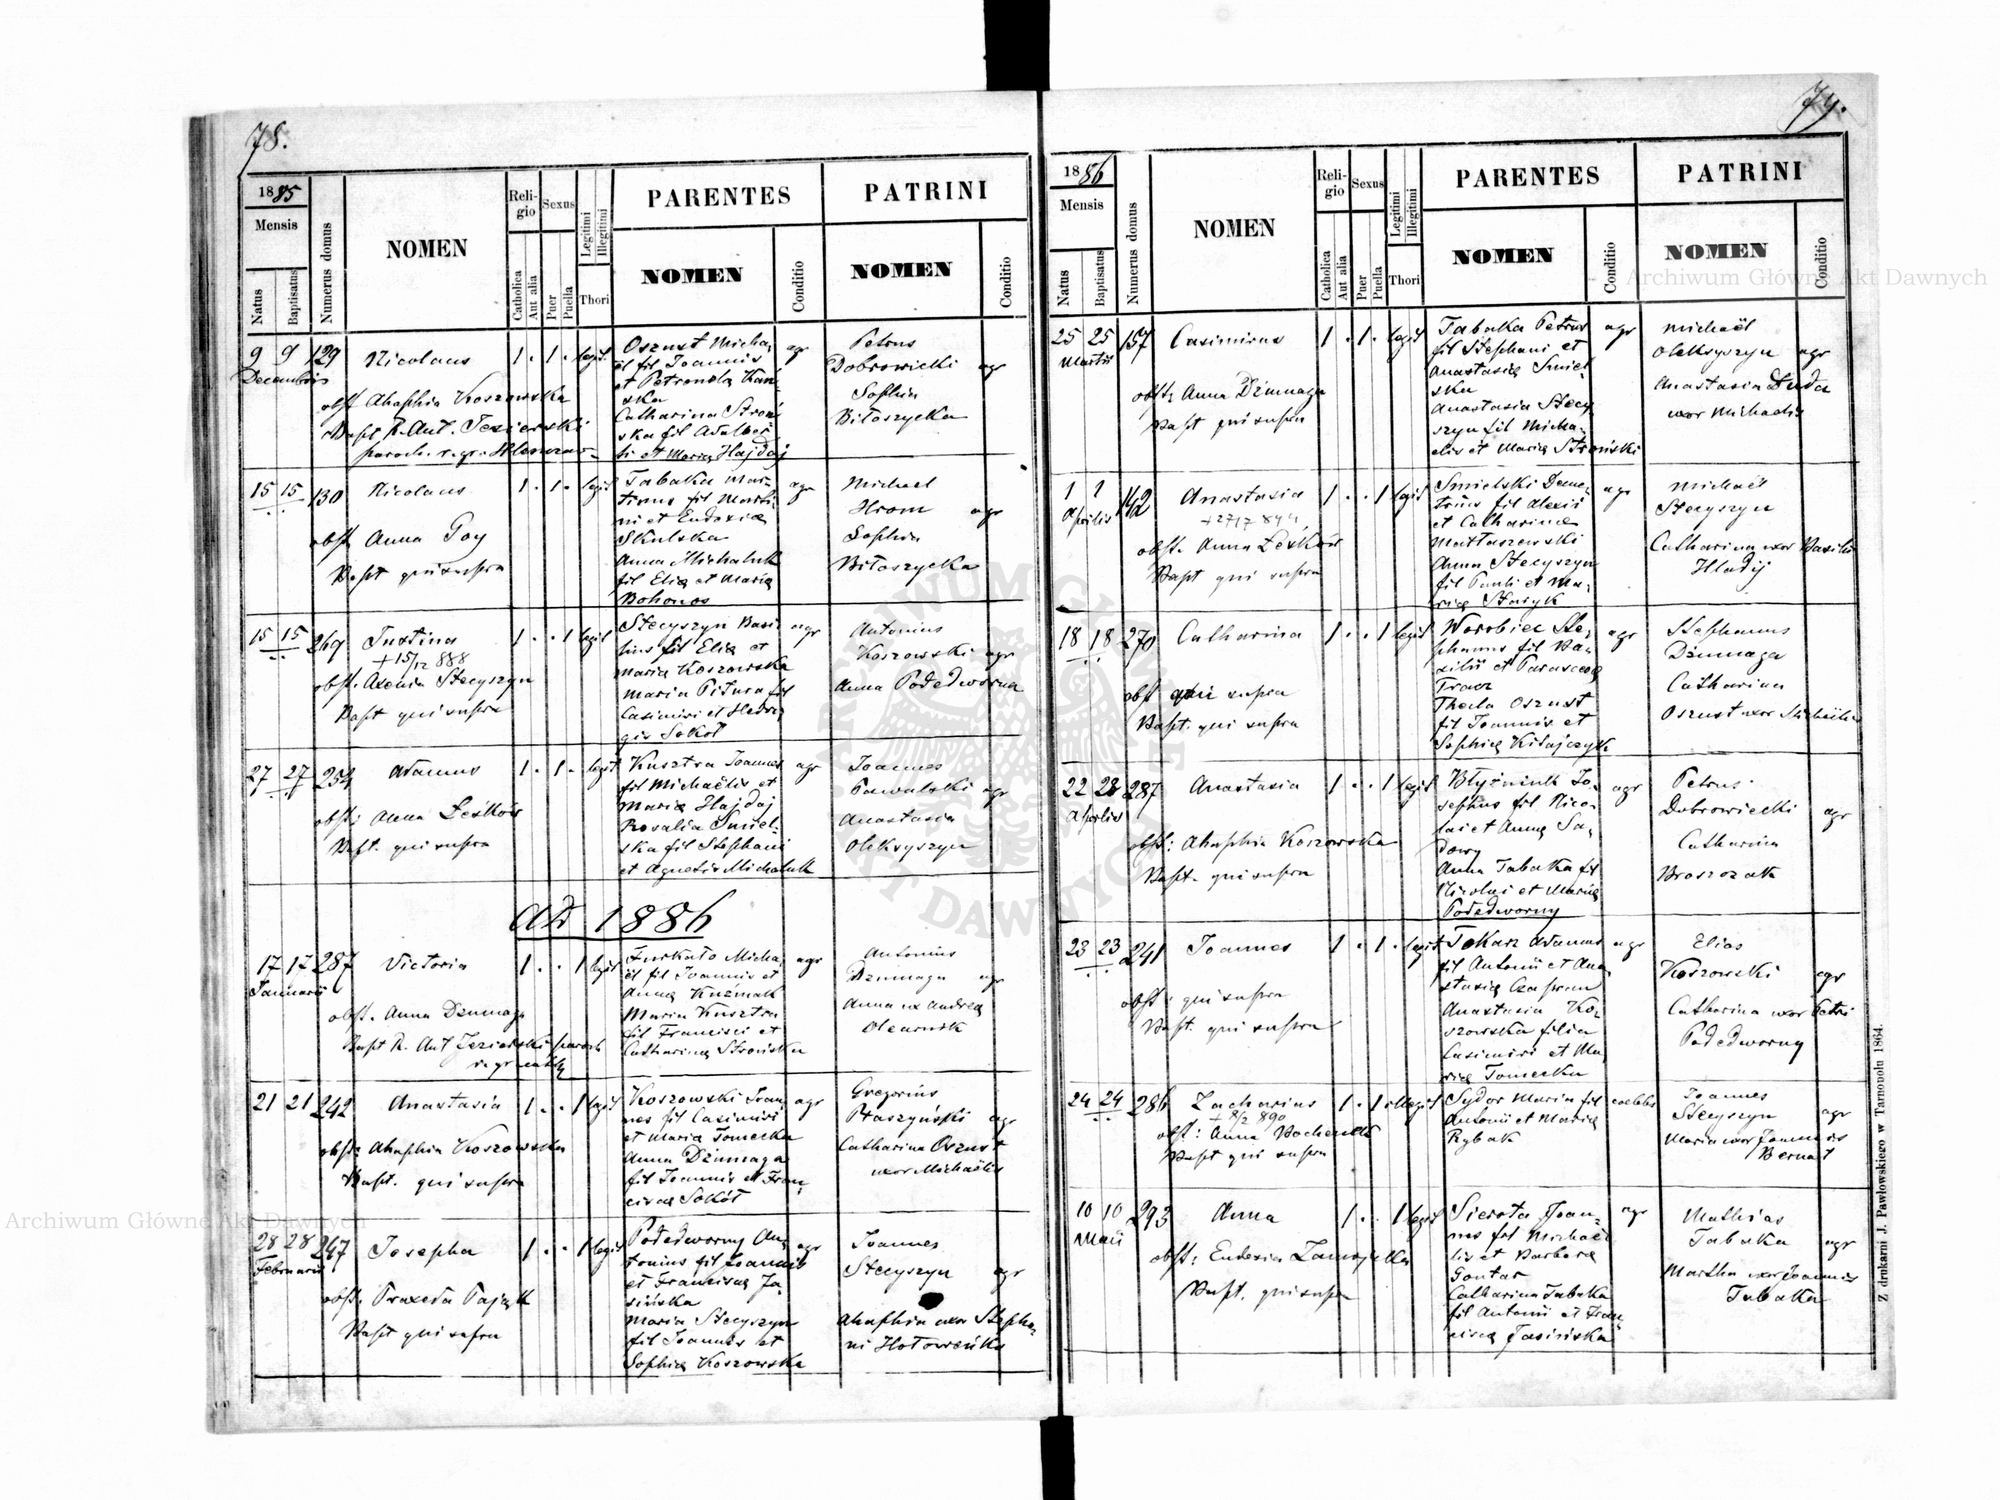 78.
1885
Mensis
Natus
Baptisatus
Numerus domus
NOMEN
Reli-
gio
Catholica
Aut alia
Sexus
Puer
Puella
Legitimi
Illegitimi
Thori
PARENTES
NOMEN
Conditio
PATRINI
NOMEN
Conditio
9 9 129
Decembris
Nicolaus
1 . 1 . legit.
obst Ahaphia Koszowska
Bapt R. Ant.
Oszust Micha-
ël fil Joannis
et Petronela
ska
Catharina Stroń-
ska fil Adalber-
ti et Maria Hajdaj
agr
Petrus
Dobrowielki agr
Sophia
Biłoszycka
15 15 130
Nicolaus
1 . 1 . legit
obst Anna Goy
Bapt qui supra
Tabaka Mar-
tinus fil Marti-
ni et Eudoxia
Skulska
Anna Michaluk
fil Elia et Maria
Bohonos
agr
Michael
Hrom agr
Sophia
Biłoszycka
15 15 269
Justina
+ 15/12 888
1 . . 1 legit
obst. Axenia Stecyszyn
Bapt qui supra
Stecyszyn Basi-
lius fil Elia et
Maria Koszowska
Maria Pitura fil
Casimiri et Hedvi-
gis Sokół
agr
Antonius
Koszowski agr
Anna Podedworna
27 27 254
Adamus
1 . 1 . legit
obst: Anna Leśków
Bapt. qui supra
Kusztra Joannes
fil Michaëlis et
Maria Hajdaj
Rosalia Smiel-
ska fil Stephani
et Agnetis Michaluk
agr
Joannes
Kowalski agr
Anastasia
Oleksyszyn
AD 1886
17 17 287
Januarii
Victoria
1 . . 1 legit
obst. Anna Dżumaga
Bapt R. Ant Jezierski paroch
Furkało Micha-
ël fil Joannis et
Anna Kuźmak
Maria Kusztra
fil Francisci et
Catharina Strońska
agr
Antonius
Dżumaga agr
Anna ux Andrea
21 21 242
Anastasia
1 . . 1 legit
obst: Ahaphia Koszowska
Bapt. qui supra
Koszowski Joan-
nes fil Casimiri
et Maria Tomecka
Anna Dżumaga
fil Joannis et Fran-
cisca Sokół
agr
Gregorius
Ptaszyński agr
Catharina Oszust
uxor Michaëlis
28 28 247
Februarii
Josepha
1 . . 1 legit
obst. Praxeda Pająk
Bapt qui supra
Podedworny An-
tonius fil Joannis
et Francisca Ja-
sińska
Maria Stecyszyn
fil Joannes et
Sophia Koszowska
agr
Joannes
Stecyszyn agr
Ahaphia uxor Stepha-
ni
79.
1886
Mensis
Natus
Baptisatus
Numerus domus
NOMEN
Reli-
gio
Catholica
Aut alia
Sexus
Puer
Puella
Legitimi
Illegitimi
Thori
PARENTES
NOMEN
Conditio
PATRINI
NOMEN
Conditio
25 25 157
Martii
Casimirus
1 . 1 . legit
obst: Anna Dżumaga
Bapt qui supra
Tabaka Petrus
fil Stephani et
Anastasia Smiel-
ska
Anastasia Stecy-
szyn fil Micha-
elis et Maria Stroński
agr
Michaël
Oleksyszyn agr
Anastasia Duda
uxor Michaelis
1 1 142
Aprilis
Anastasia
1 . . 1 legit
obst. Anna Leśków
Bapt qui supra
Smielski Deme-
trius fil Alexii
et Catharina
Mattaszewski
Anna Stecyszyn
fil Pauli et Ma-
ria Staryk
agr
Michaël
Stecyszyn
Catharina uxor Basilii
Hladij
18 18 270
Catharina
1 . . 1 legit
obst qui supra
Bapt. qui supra
Worobiec Ste-
phanus fil Ba-
silii et Parasceva
Tracz
Thecla Oszust
fil Joannis et
Sophia Kitajczyk
agr
Stephanus
Dżumaga
Catharina
Oszust uxor Michaëlis
22 28 287
Aprilis
Anastasia
1 . . 1 legit
obst: Ahaphia Koszowska
Bapt. qui supra
Błyźniuk Jo-
sephus fil Nico-
lai et Anna Sa-
dowy
Anna Tabaka fil
Nicolai et Maria
Podedworny
agr
Petrus
Dobrowielki agr
Catharina
23 23 241
Joannes
1 . 1 . legit
obst: qui supra
Bapt. qui supra
Tokarz Adamus
fil Antonii et Ana-
stasia Czapran
Anastasia Ko-
szowska filia
Casimiri et Ma-
ria Tomecka
agr
Elias
Koszowski agr
Catharina uxor Petri
Podedworny
24 24 286
Zacharius
+ 8/2 890
1 . 1 illegit
obst: Anna
Bapt qui supra
Sydor Maria fil
Antonii et Maria
Rybak
coelebs
Joannes
Stecyszyn agr
Maria uxor Joannis
Bernat
10 10 293
Maii
Anna
1 . . 1 legit
obst: Eudoxia
Bapt. qui supra
Sierota Joan-
nes fil Michaë-
lis et Barbara
Gontar
Catharina Tabaka
fil Antonii et Fran-
cisca Jasińska
agr
Mathias
Tabaka agr
Martha uxor Joannis
Tabaka
Z drukarni J. Pawłowskiego w Tarnopolu 1864.
Archiwum Główne Akt Dawnych
Archiwum Główne Akt Dawnych
ARCHIWUM GŁÓWNE AKT DAWNYCH